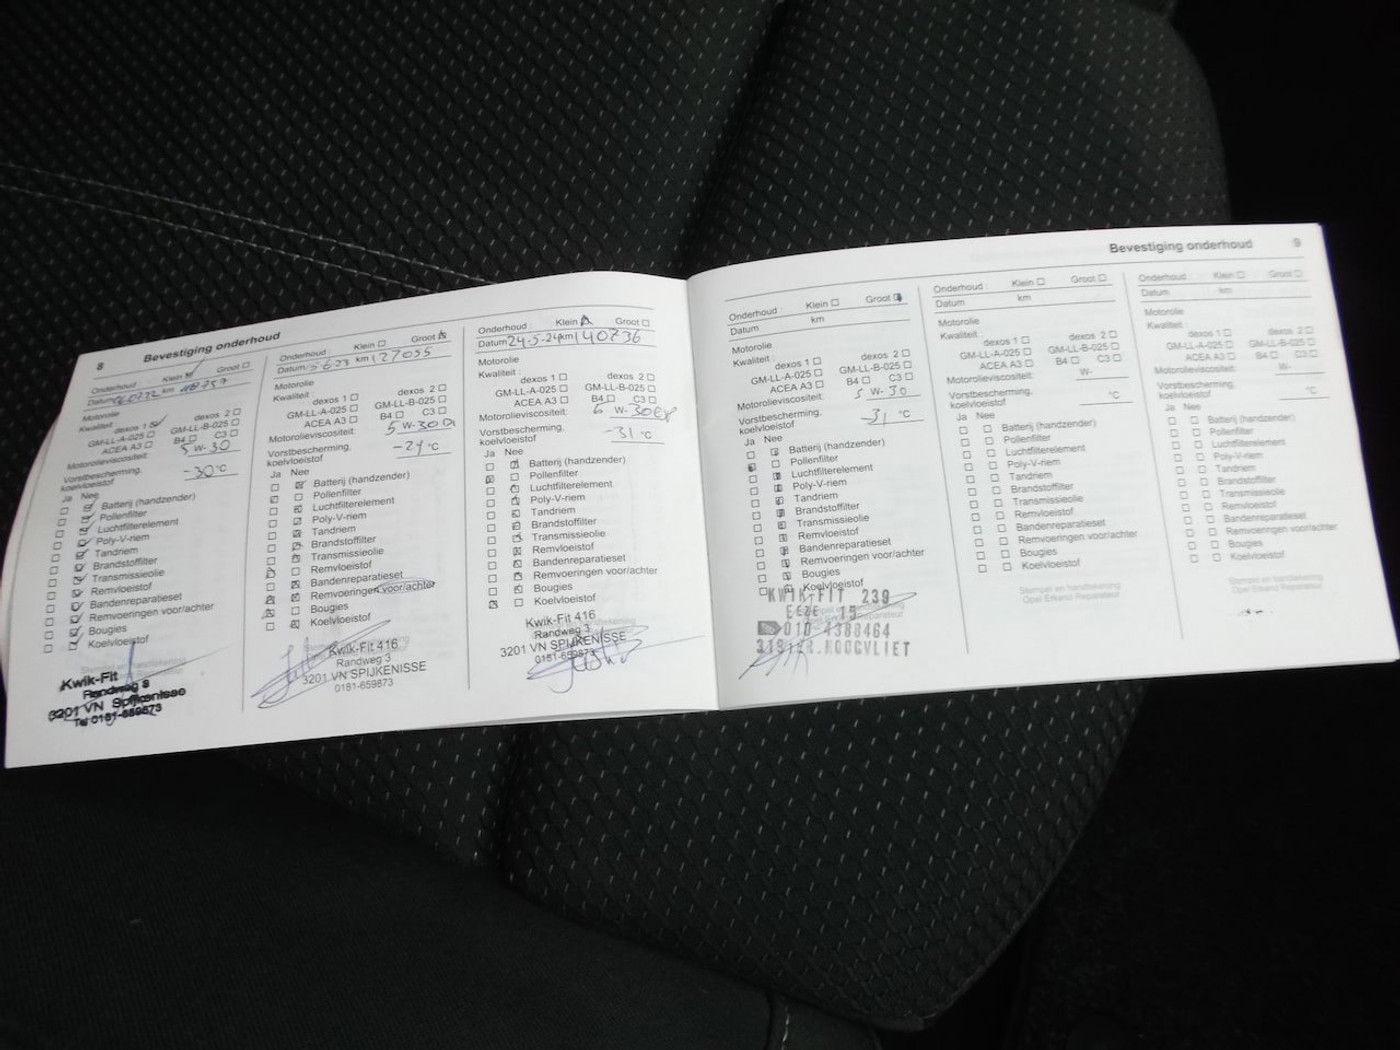 8
Bevestiging onderhoud
Onderhoud : Klein Groot
Datum km
Motorolie
Kwaliteit :
dexos 1 dexos 2
GM-LL-A-025 GM-LL-B-025
ACEA A3 B4 C3
Motorolieviscositeit: 5 W-30
Vorstbescherming,
koelvloeistof -30 °C
Ja Nee
Batterij (handzender)
Pollenfilter
Luchtfilterelement
Poly-V-riem
Tandriem
Brandstoffilter
Transmissieolie
Remvloeistof
Bandenreparatieset
Remvoeringen voor/achter
Bougies
Koelvloeistof
Kwik-Fit
Randweg 3
3201 VN Spijkenisse
Tel 0181-659873
Onderhoud Klein Groot
Datum 5-6-23 km 127055
Motorolie
Kwaliteit :
dexos 1 dexos 2
GM-LL-A-025 GM-LL-B-025
ACEA A3 B4 C3
Motorolieviscositeit: 5 W-30
Vorstbescherming,
koelvloeistof °C
Ja Nee
Batterij (handzender)
Pollenfilter
Luchtfilterelement
Poly-V-riem
Tandriem
Brandstoffilter
Transmissieolie
Remvloeistof
Bandenreparatieset
Remvoeringen voor/achter
Bougies
Koelvloeistof
Kwik-Fit 416
Randweg 3
3201 VN SPIJKENISSE
0181-659873
Onderhoud Klein Groot
Datum 24-5-24 km 140736
Motorolie
Kwaliteit :
dexos 1 dexos 2
GM-LL-A-025 GM-LL-B-025
ACEA A3 B4 C3
Motorolieviscositeit: W-30
Vorstbescherming,
koelvloeistof -31 °C
Ja Nee
Batterij (handzender)
Pollenfilter
Luchtfilterelement
Poly-V-riem
Tandriem
Brandstoffilter
Transmissieolie
Remvloeistof
Bandenreparatieset
Remvoeringen voor/achter
Bougies
Koelvloeistof
Kwik-Fit 416
Randweg 3
3201 VN SPIJKENISSE
0181-659873
Bevestiging onderhoud
9
Onderhoud : Klein Groot
Datum km
Motorolie
Kwaliteit :
dexos 1 dexos 2
GM-LL-A-025 GM-LL-B-025
ACEA A3 B4 C3
Motorolieviscositeit: 5 W-30
Vorstbescherming,
koelvloeistof -31 °C
Ja Nee
Batterij (handzender)
Pollenfilter
Luchtfilterelement
Poly-V-riem
Tandriem
Brandstoffilter
Transmissieolie
Remvloeistof
Bandenreparatieset
Remvoeringen voor/achter
Bougies
Koelvloeistof
KWIK-FIT 239
010 4388464
HOOGVLIET
Onderhoud : Klein Groot
Datum km
Motorolie
Kwaliteit :
dexos 1 dexos 2
GM-LL-A-025 GM-LL-B-025
ACEA A3 B4 C3
Motorolieviscositeit: W-
Vorstbescherming,
koelvloeistof °C
Ja Nee
Batterij (handzender)
Pollenfilter
Luchtfilterelement
Poly-V-riem
Tandriem
Brandstoffilter
Transmissieolie
Remvloeistof
Bandenreparatieset
Remvoeringen voor/achter
Bougies
Koelvloeistof
Stempel en handtekening
Opel Erkend Reparateur
Onderhoud : Klein Groot
Datum km
Motorolie
Kwaliteit :
dexos 1 dexos 2
GM-LL-A-025 GM-LL-B-025
ACEA A3 B4 C3
Motorolieviscositeit: W-
Vorstbescherming,
koelvloeistof °C
Ja Nee
Batterij (handzender)
Pollenfilter
Luchtfilterelement
Poly-V-riem
Tandriem
Brandstoffilter
Transmissieolie
Remvloeistof
Bandenreparatieset
Remvoeringen voor/achter
Bougies
Koelvloeistof
Stempel en handtekening
Opel Erkend Reparateur